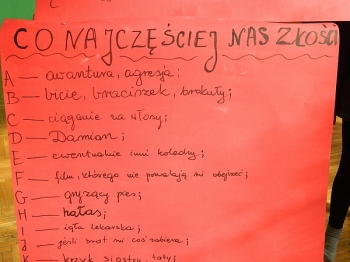 CO NAJCZĘŚCIEJ NAS ZŁOŚCI
A — awantura, agresja;
B — bicie, braciszek, brokuły;
C — ciąganie za włosy;
D — Damian;
E — ewentualnie inni koledzy;
F — film, którego nie pozwalają mi obejrzeć;
G — gryzący pies;
H — hałas;
I — igła lekarska;
J — jeśli brat mi coś zabiera;
K — krzyk siostry, taty;